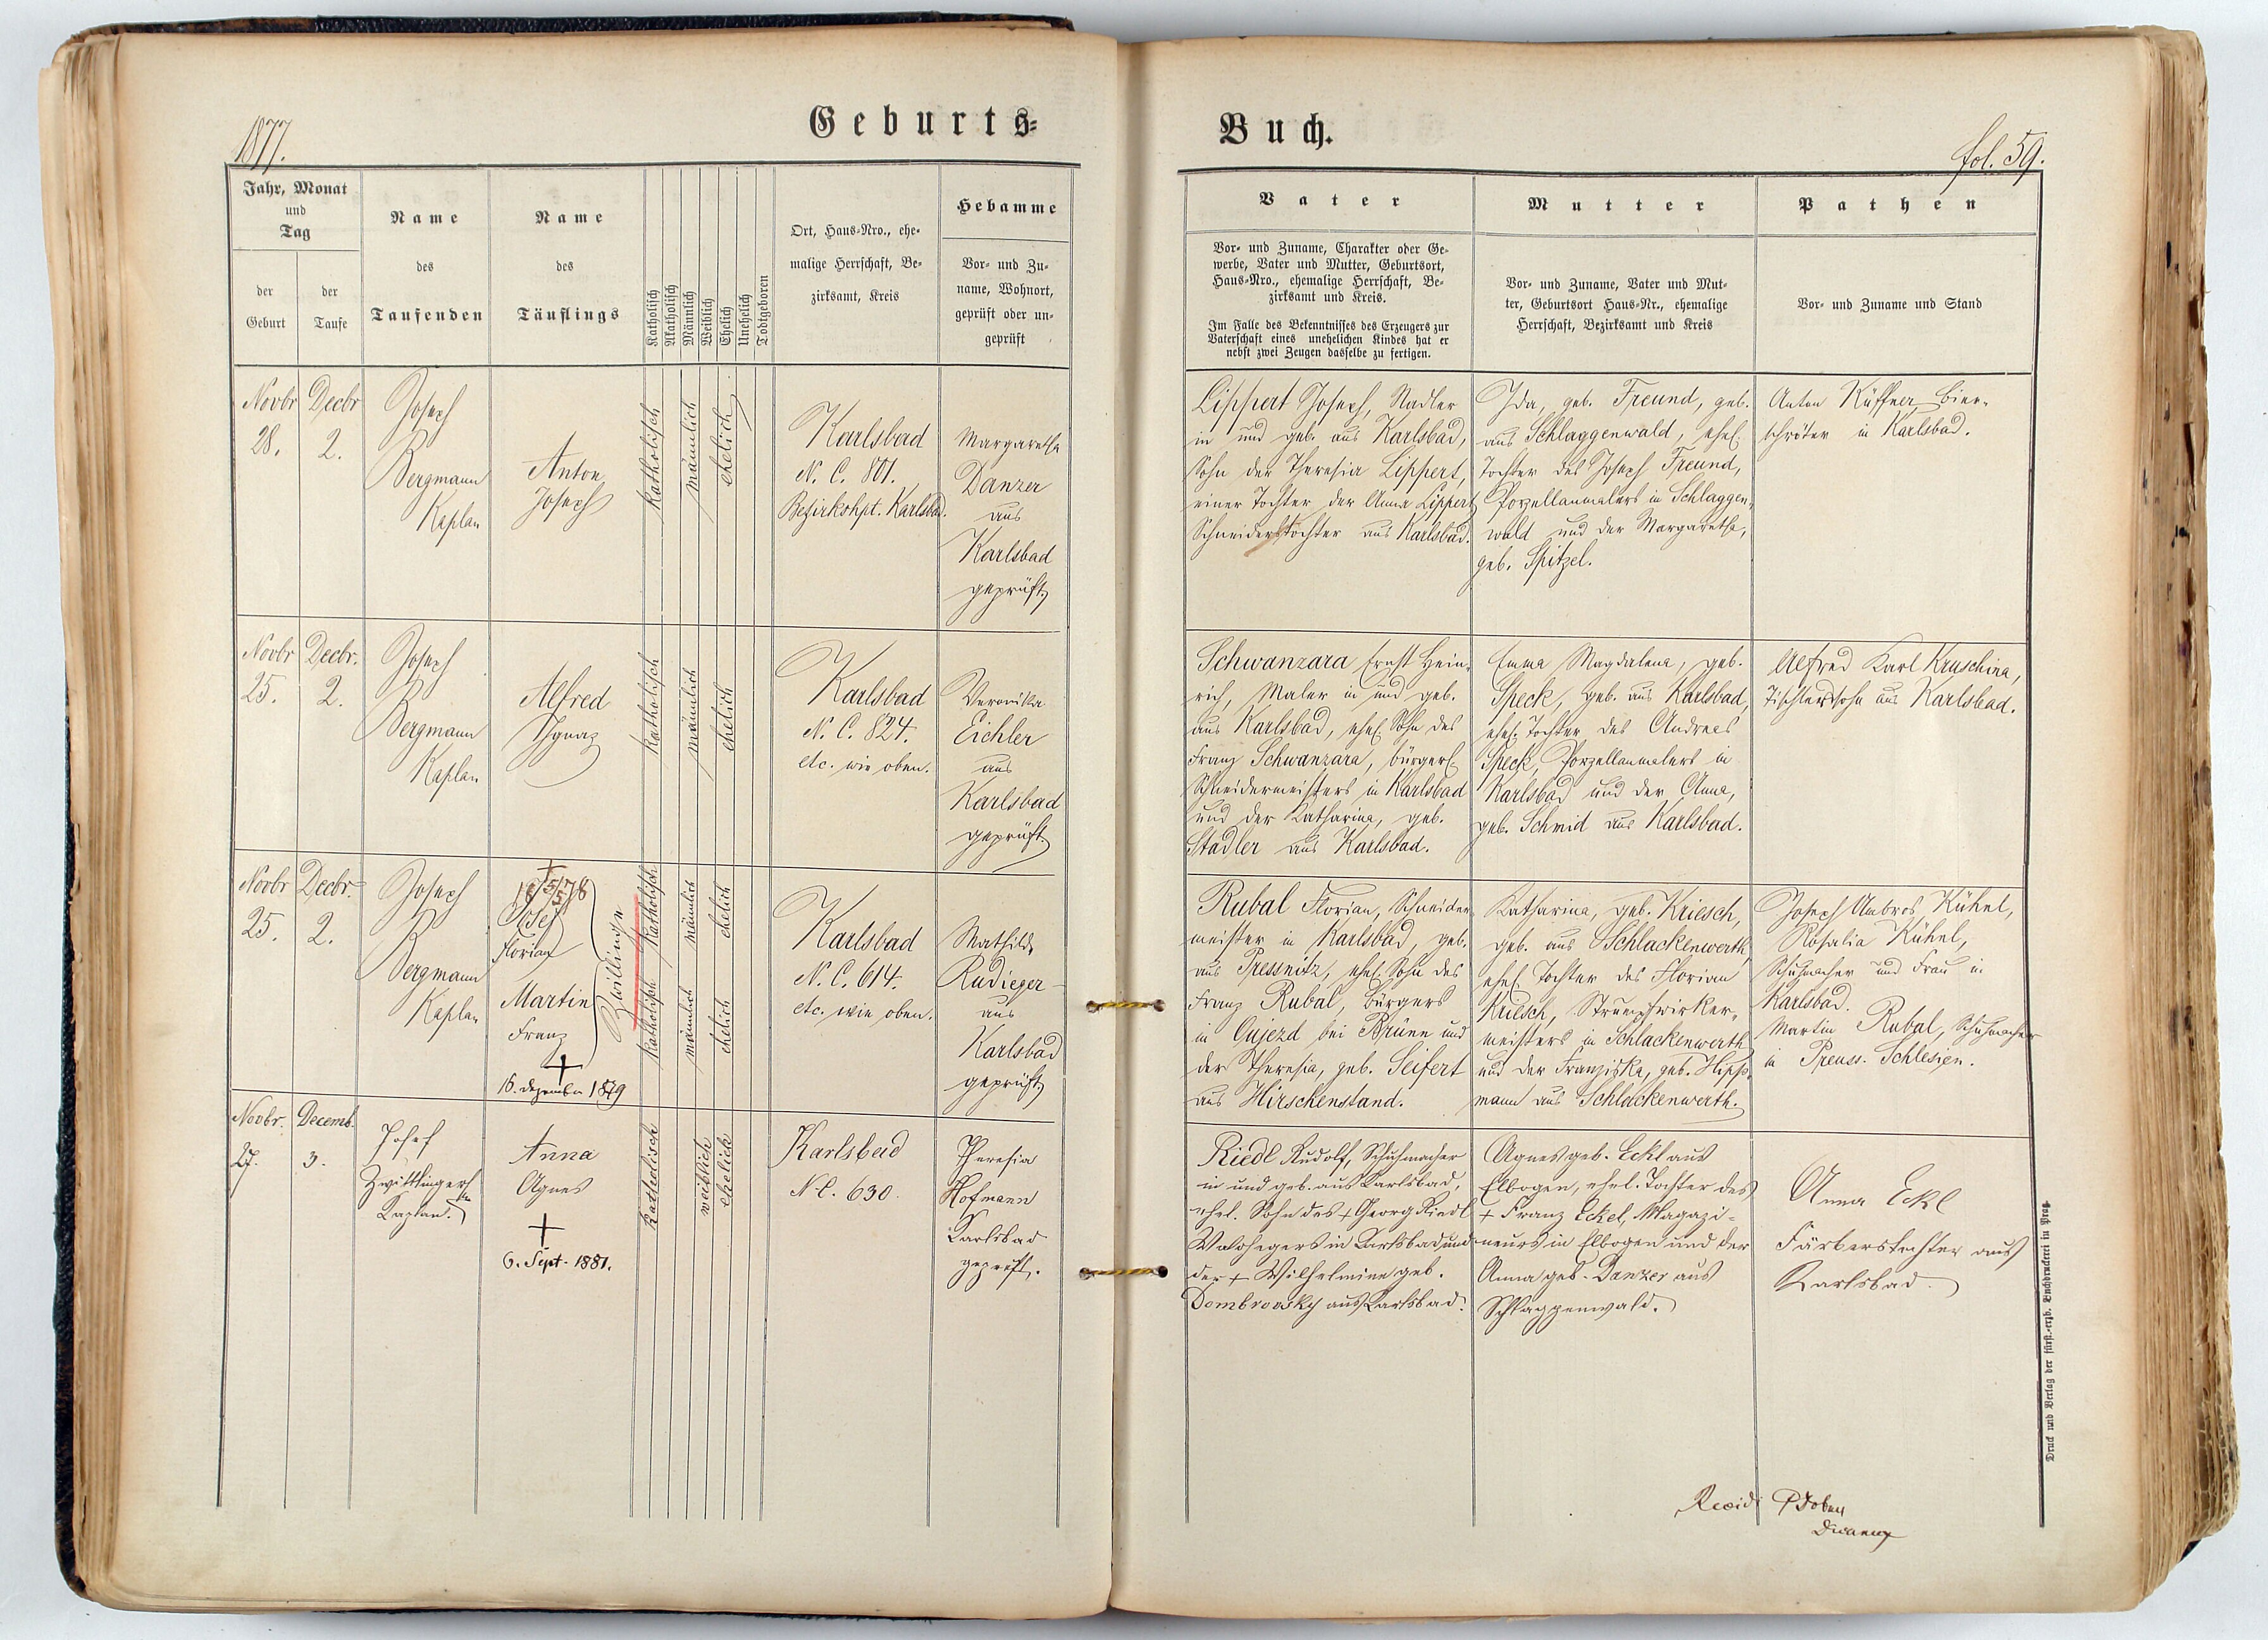 1877.
Geburts-
Buch.
fol. 59.
Jahr, Monat
und
Tag
der
Geburt
der
Taufe
Name
des
Taufenden
Name
des
Täuflings
Katholisch
Akatholisch
Männlich
Weiblich
Ehelich
Unehelich
Todtgeboren
Ort, Haus-Nro., ehe-
malige Herrschaft, Be-
zirksamt, Kreis
Hebamme
Vor- und Zu-
name, Wohnort,
geprüft oder un-
geprüft
Vater
Vor- und Zuname, Charakter oder Ge-
werbe, Vater und Mutter, Geburtsort,
Haus-Nro., ehemalige Herrschaft, Be-
zirksamt und Kreis.
Im Falle des Bekenntnisses des Erzeugers zur
Vaterschaft eines unehelichen Kindes hat er
nebst zwei Zeugen dasselbe zu fertigen.
Mutter
Vor- und Zuname, Vater und Mut-
ter, Geburtsort Haus-Nr., ehemalige
Herrschaft, Bezirksamt und Kreis
Pathen
Vor- und Zuname und Stand
Novbr
28.
Decbr
2.
Joseph
Bergmann
Kaplan
Anton
Joseph
katholisch
männlich
ehelich
Karlsbad
N. C. 801.
Bezirkshpt. Karlsbad.
Margaretha
Danzer
aus
Karlsbad
geprüft
Lippert Joseph, Nadler
in und geb. aus Karlsbad,
Sohn der Theresia Lippert,
einer Tochter der Anna Lippert
Schneiderstochter aus Karlsbad.
Ida, geb. Freund, geb.
aus Schlaggenwald, ehel.
Tochter des Joseph Freund,
Porzellanmalers in Schlaggen-
wald und der Margaretha,
geb. Spitzel.
Anton Küffner Bier-
schröter in Karlsbad.
Novbr
25.
Decbr.
2.
Joseph
Bergmann
Kaplan
Alfred
Ignaz
katholisch
männlich
ehelich
Karlsbad
N. C. 824.
etc. wie oben.
Veronika
Eichler
aus
Karlsbad
geprüft
Schwanzara Ernst Hein-
rich, Maler in und geb.
aus Karlsbad, ehel. Sohn des
Franz Schwanzara, bürgerl.
Schneidermeisters in Karlsbad
und der Katharina, geb.
Stadler aus Karlsbad.
Emma Magdalena, geb.
Speck, geb. aus Karlsbad,
ehel. Tochter des Andreas
Speck, Porzellanmalers in
Karlsbad und der Anna,
geb. Schmid aus Karlsbad.
Alfred Karl Kruschina,
Tischlerssohn aus Karlsbad.
Novbr
25.
Decbr.
2.
Joseph
Bergmann
Kaplan
Josef
Florian
Martin
Franz
Zwillinge
16. Dezember 1879
katholisch katholisch
männlich männlich
ehelich ehelich
Karlsbad
N. C. 614.
etc. wie oben.
Mathilde
Rudieger
aus
Karlsbad
geprüft
Rubal Florian, Schneider-
meister in Karlsbad, geb.
aus Pressnitz, ehel. Sohn des
Franz Rubal, Bürgers
in Gujezd bei Brünn und
der Theresia, geb. Seifert
aus Hirschenstand.
Katharina, geb. Kriesch,
geb. aus Schlackenwerth,
ehel. Tochter des Florian
Kriesch, Strumpfwirker-
meisters in Schlackenwerth
und der Franziska, geb. Hipp-
mann aus Schlackenwerth.
Joseph Ambros Kühnl,
Rosalia Kühnl,
Schuhmacher und Frau in
Karlsbad.
Martin Rubal, Schuhmacher
in Preuss. Schlesien.
Novbr.
27.
Decemb.
3.
Josef
Zwittlinger
Kaplan.
Anna
Agnes
6. Sept. 1881.
katholisch
weiblich
ehelich
Karlsbad
N. C. 630.
Theresia
Hofmann
Karlsbad
geprüft.
Riedl Rudolf, Schuhmacher
in und geb. aus Karlsbad,
ehel. Sohn des † Georg Riedl
Waldhegers in Karlsbad und
der † Wilhelmine geb.
Dombrovsky aus Karlsbad.
Agnes geb. Eckl aus
Elbogen, ehel. Tochter des
† Franz Eckel, Magazi-
neurs in Elbogen und der
Anna geb. Danzer aus
Schlaggenwald.
Anna Eckl
Färberstochter aus
Karlsbad.
Revidi
Druck und Verlag der fürst.-erzb. Buchdruckerei in Prag.